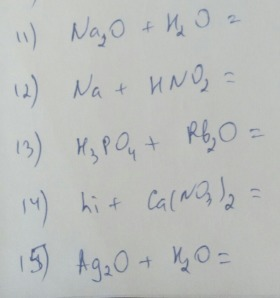 11) Na₂O + H₂O =
12) Na + HNO₂ =
13) H₃PO₄ + Rb₂O =
14) Li + Ca(NO₃)₂ =
15) Ag₂O + H₂O =